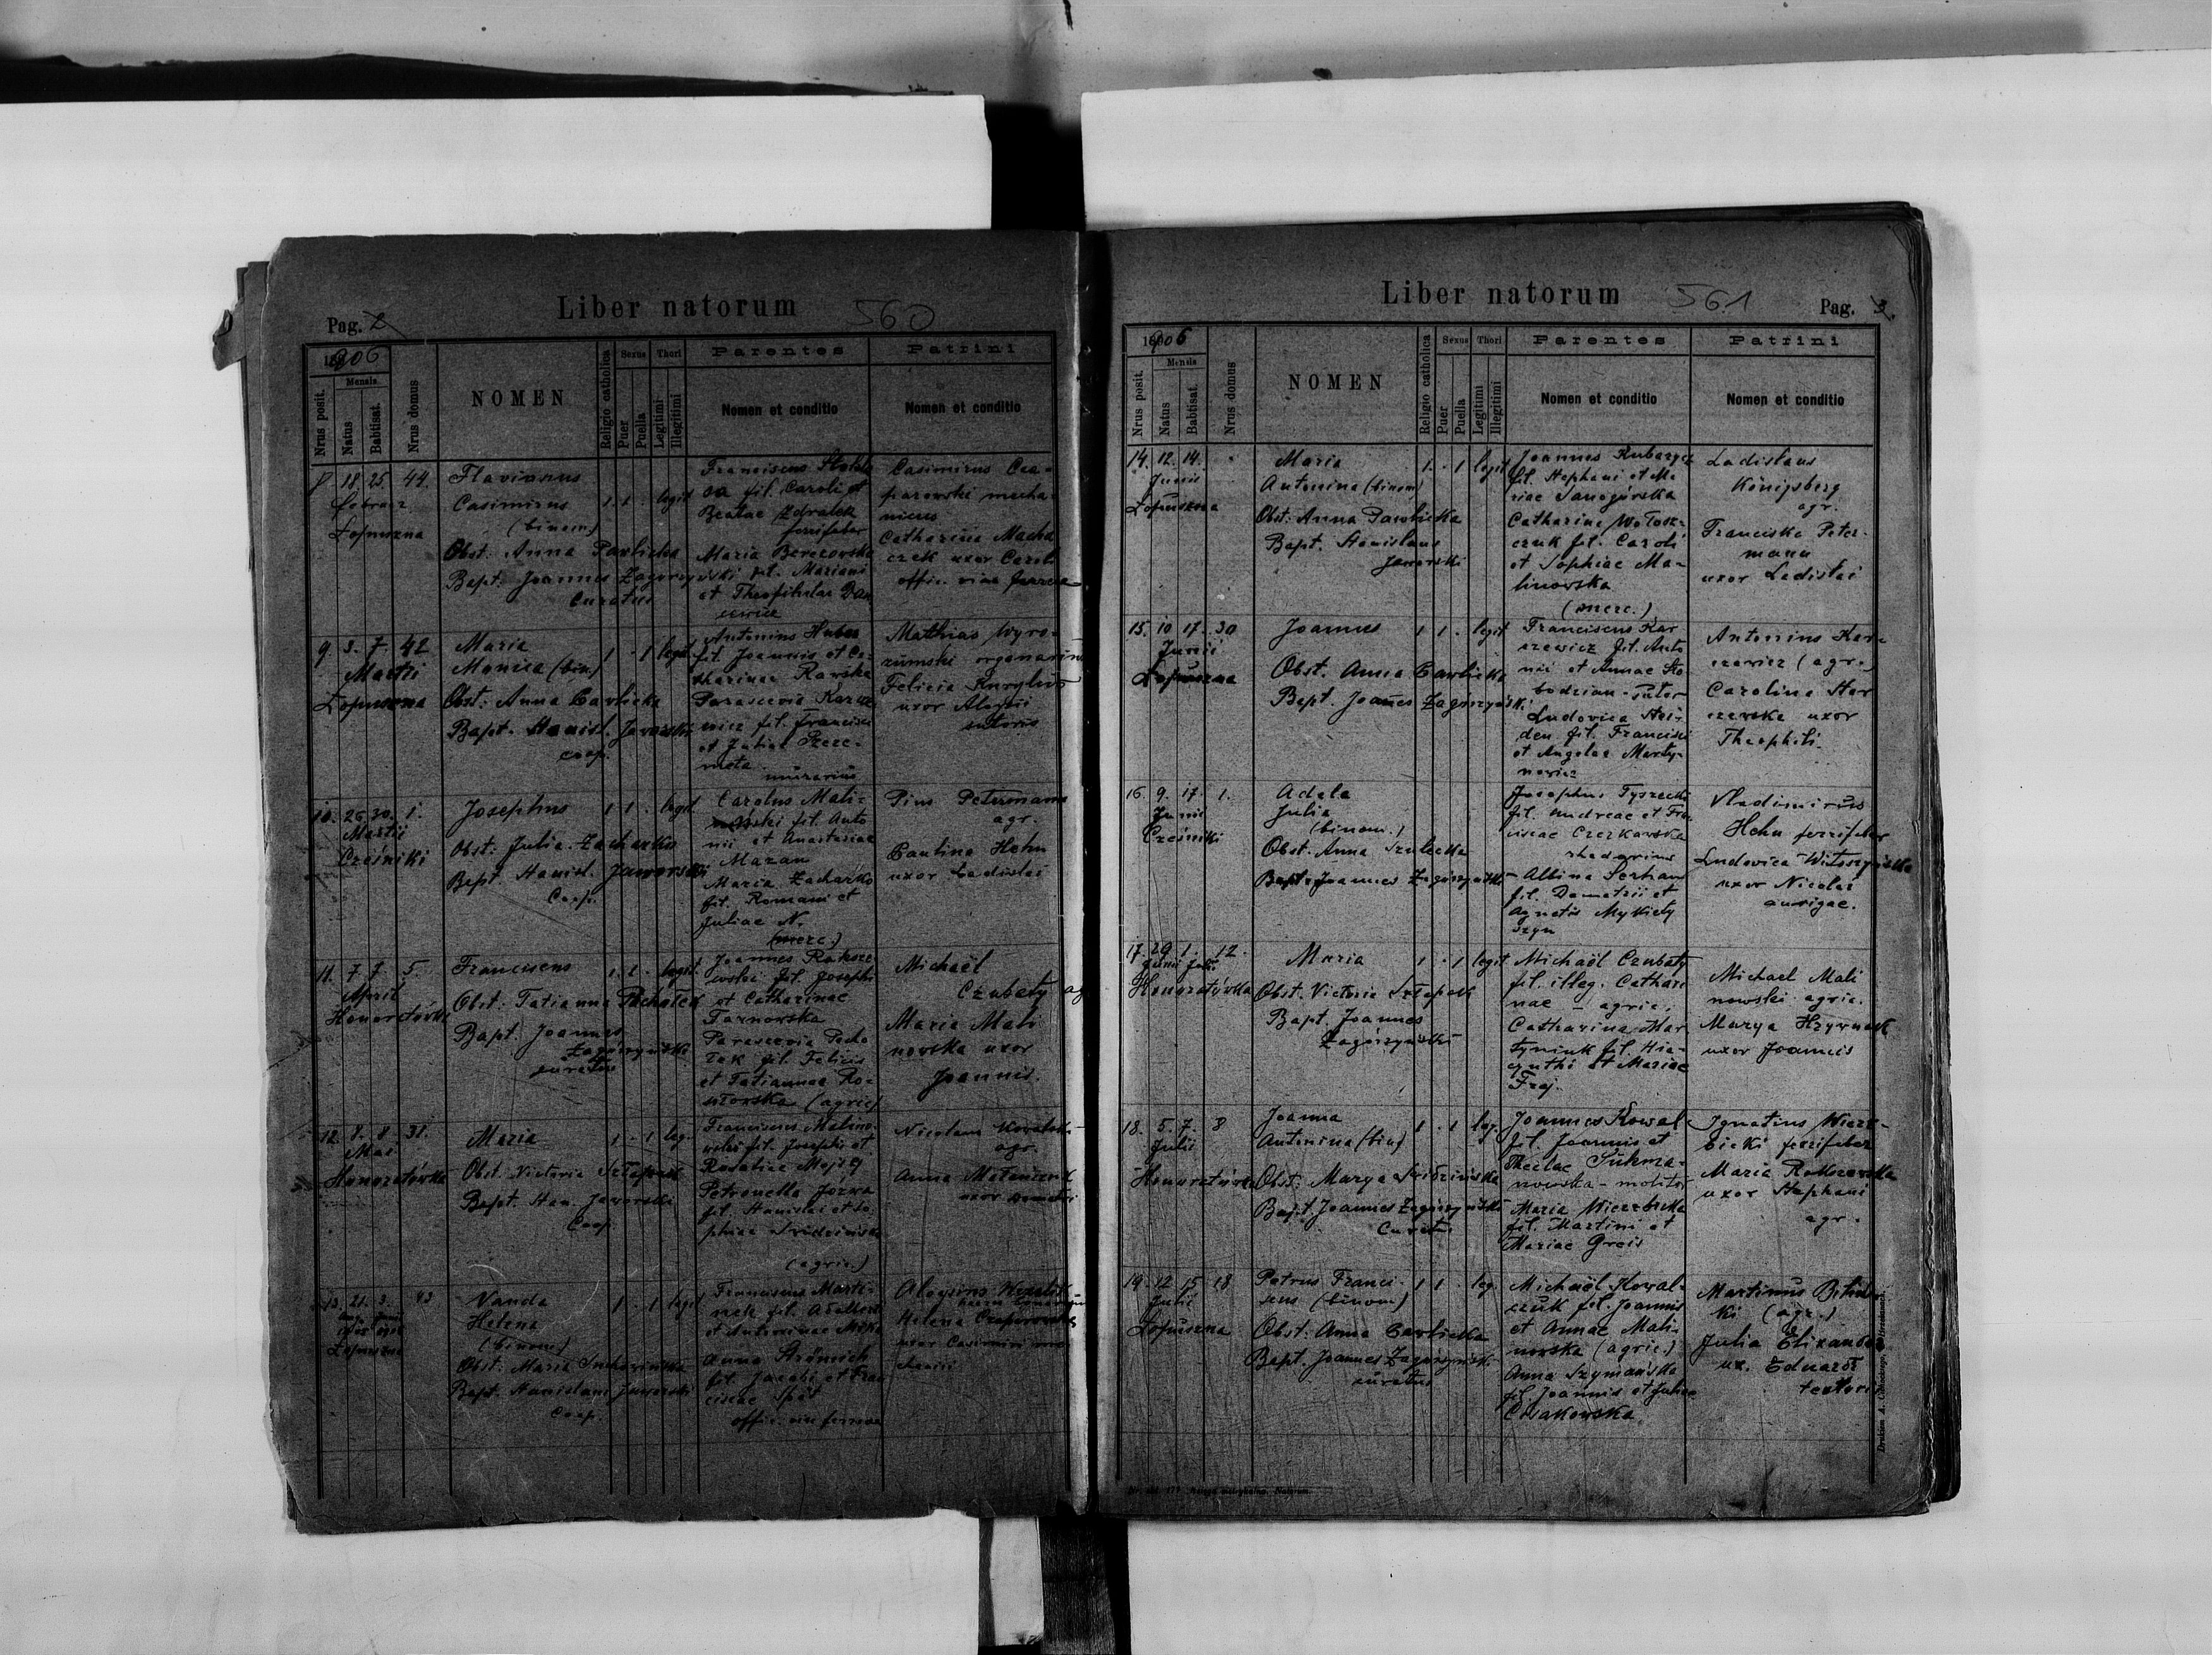 Liber natorum 560
Pag. 2
1906
Nrus posit.
Mensis
Natus
Babtisat.
Nrus domus
NOMEN
Religio catholica
Sexus
Puer
Puella
Thori
Legitimi
Illegitimi
Parentes
Nomen et conditio
Patrini
Nomen et conditio
8 18. 25. 44.
Februar.
Łopuszna
Flavianus
Casimirus
(binom.)
Obst: Anna Pawlicka
Bapt. Joannes Zagórzyński
Curatus
1. 1. legit
Franciscus
fil. Caroli et
Beatae
ferrifaber
Maria Berezowska
fil. Mariani
et Theophilae
Casimirus Cza-
parowski mecha-
nicus
Catharina Macha
czek uxor Caroli
offic. viae ferreae
9. 3. 7. 42
Martii
Łopuszna
Maria
Monica (bin.)
Obst: Anna Pawlicka
Bapt. Stanisl. Jaworski
coop.
1 1 legit
Antonius Huber
fil. Joannis et Ca-
tharinae Rawska
Parascevia Karcze
wicz fil. Francisci
et Juliae Szere-
meta
murarius
Mathias Wyro-
zumski organarius
Felicia Kuryluś
uxor Aloysii
sutoris
10. 26. 30. 1.
Martii
Cześniki
Josephus
Obst: Julia Zacharko
Bapt. Stanisl. Jaworski
Coop.
1 1. legit
Carolus Mali-
nowski fil. Anto
nii et Anastasiae
Mazan
Maria Zacharko
fil. Romani et
Juliae N.
(merc.)
Pius Petermann
agr.
Paulina Hohn
uxor Ladislai
11. 7. 7. 5.
April
Honoratówka
Franciscus
Obst: Tatianna Pachołek
Bapt. Joannes
Zagórzyński
curatus
1. 1. legit.
Joannes Rokosze
wski fil. Josephi
et Catharinae
Tarnowska
Parascevia Pacho
łek fil. Felicis
et Tatiannae Ro-
(agric.)
Michaël
Czubaty ag
Maria Mali
nowska uxor
Joannis.
12. 8. 8. 31.
Mai
Honoratówka
Maria
Obst. Victoria Szłapak
Bapt. Stan. Jaworski
Coop.
1. 1 leg.
Franciscus Malino-
wski fil. Josephi et
Rosaliae Majka
Petronella Józwa
fil. Stanislai et So
phiae Świdzińska
(agric.)
Nicolaus Kowalski
agr.
Anna
uxor Demetrii
13. 21. 3. 43
Łopuszna
Vanda
Helena
(binom)
Obst. Maria Suchorińska
Bapt. Stanislaus Jaworski
Coop.
1. 1 legit
Franciscus Marti-
nek fil. Adalberti
et Antoninae Mika
Anna Strömich
fil. Jacobi et Fran
ciscae Spät
offic. viae ferreae
Aloysius
Helena Czaparowska
uxor Casimiri me-
chanici
Liber natorum 561
Pag. 3.
1906
Nrus posit.
Mensis
Natus
Babtisat.
Nrus domus
NOMEN
Religio catholica
Sexus
Puer
Puella
Thori
Legitimi
Illegitimi
Parentes
Nomen et conditio
Patrini
Nomen et conditio
14. 12. 14.
Junii
Łopuszna
Maria
Antonina (binom)
Obst: Anna Pawlicka
Bapt. Stanislaus
Jaworski
1. 1 legit
Joannes Kubarycz
fil. Stephani et Ma
riae Sanogórska
Catharina Wołosz-
czuk fil. Caroli
et Sophiae Ma-
linowska
(merc.)
Ladislaus
Königsberg
agr.
Francisca Peter-
mann
uxor Ladislai
15. 10 17. 30
Junii
Łopuszna
Joannes
Obst. Anna Pawlicka
Bapt. Joannes Zagórzyński
1 1. legit
Franciscus Kar
czewicz fil. Anto
nii et Annae Sło
bodzian - sutor
Ludovica Stei-
den fil. Francisci
et Angelae Marty-
nowicz
Antonius Kar-
czewicz (agr.)
Carolina Star
czewska uxor
Theophili.
16. 9. 17. 1.
Junii
Cześniki
Adela
Julia
(binom.)
Obst. Anna Szulecka
Bapt: Joannes Zagórzyński
Josephus Tyszecki
fil. Andreae et Fran
ciscae Czerkawska
rhedarius
- Albina Serhan
fil. Demetrii et
Agnetis Mykiety
szyn
Vladimirus
Hohn ferrifaber
Ludovica Witoszyńska
uxor Nicolai
aurigae.
17. 29 1. 12.
Junii Julii
Honoratówka
Maria
Obst. Victoria Szłapak
Bapt. Joannes
Zagórzyński
1 1 legit
Michaël Czubaty
fil. illeg. Cathari
nae - agric.
Catharina Mar
tyniuk fil. Hia-
cynthi et Mariae
Fraj.
Michael Mali
nowski agric.
Marya Hrynuck
uxor Joannis
18. 5. 7. 8
Julii
Honoratówka
Joanna
Antonina (bin.)
Obst: Marya Świdzińska
Bapt. Joannes Zagórzyński
Curatus
1 1 leg.
Joannes Kowal
fil. Joannis et
Theclae Sukma-
nowska - molitor
Maria Wierzbicka
fil. Martini et
Mariae Greis
Ignatius Wierz-
bicki ferrifaber
Maria Rokoszewska
uxor Stephani
agr.
19. 12 15. 18
Julii
Łopuszna
Petrus Franci-
scus (binom)
Obst: Anna Pawlicka
Bapt. Joannes Zagórzyński
curatus
1 1. leg.
Michaël Kowal-
czuk fil. Joannis
et Annae Mali-
nowska (agric.)
Anna Szymańska
fil. Joannis et Juliae
Czakowska
Martinus
ki (agr.)
Julia
ux. Eduardi
textoris